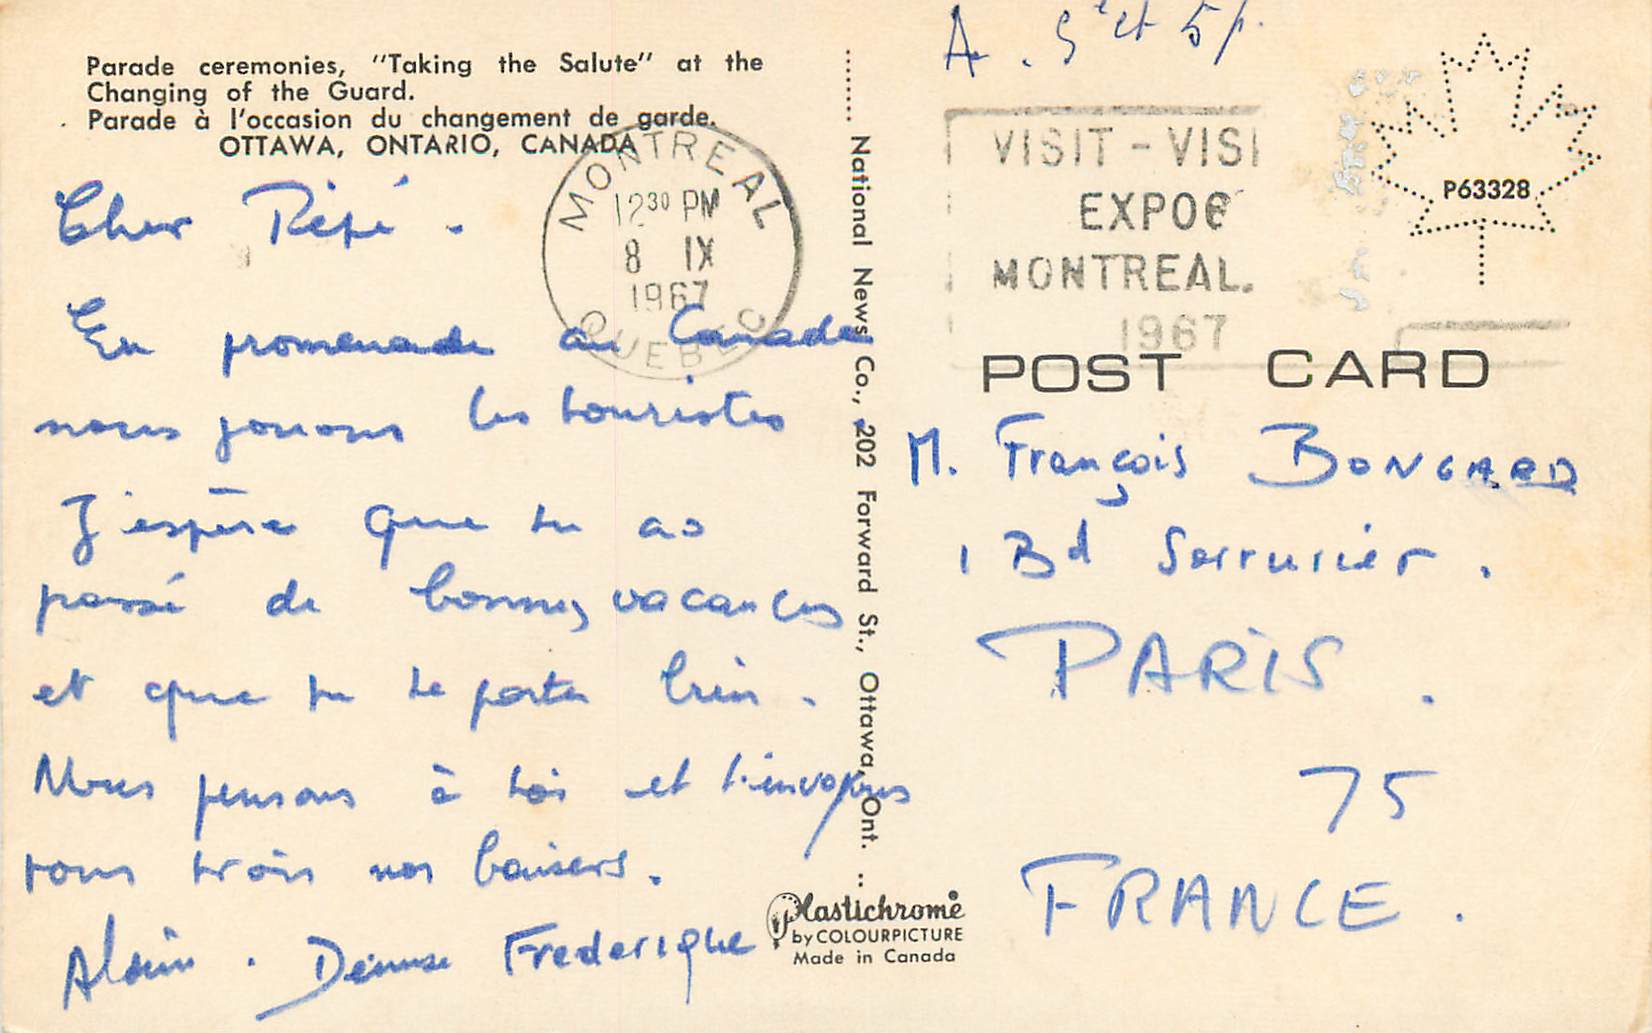 Parade ceremonies, "Taking the Salute" at the
Changing of the Guard.
Parade à l'occasion du changement de garde.
OTTAWA, ONTARIO, CANADA
Cher Pépé.
En promenade au Canada
nous jouons les touristes
J'espère que tu as
passé de bonnes vacances
et que tu te portes bien.
Nous pensons à toi et t'envoyons
tous trois nos baisers.
Alain. Denise Frederique
MONTREAL
12 30 PM
8 IX
1967
QUEBEC
National News Co., 202 Forward St., Ottawa, Ont.
Plastichrome
by COLOURPICTURE
Made in Canada
A. 5e et 5 p.
VISIT - VISI
EXPO6
MONTREAL.
1967
P63328
POST CARD
M. François BONGARD
1 Bd Serrurier.
PARIS.
75
FRANCE.